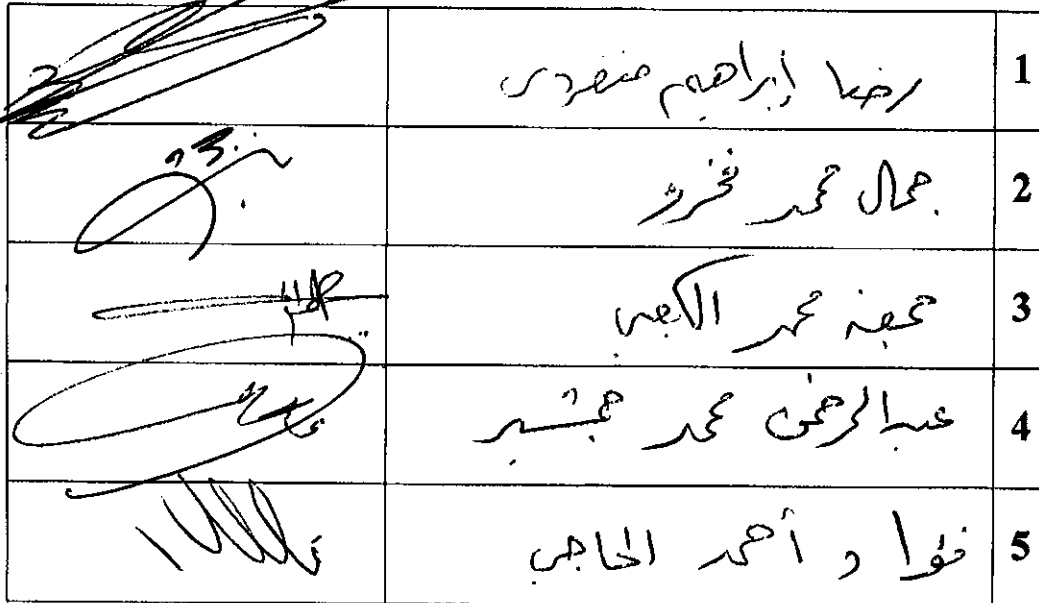 1 رضا إبراهيم منفردي
2 جمال محمد فخرو
3 جمعة محمد الكعبي
4 عبدالرحمن محمد جمشير
5 فؤاد أحمد الحاجي